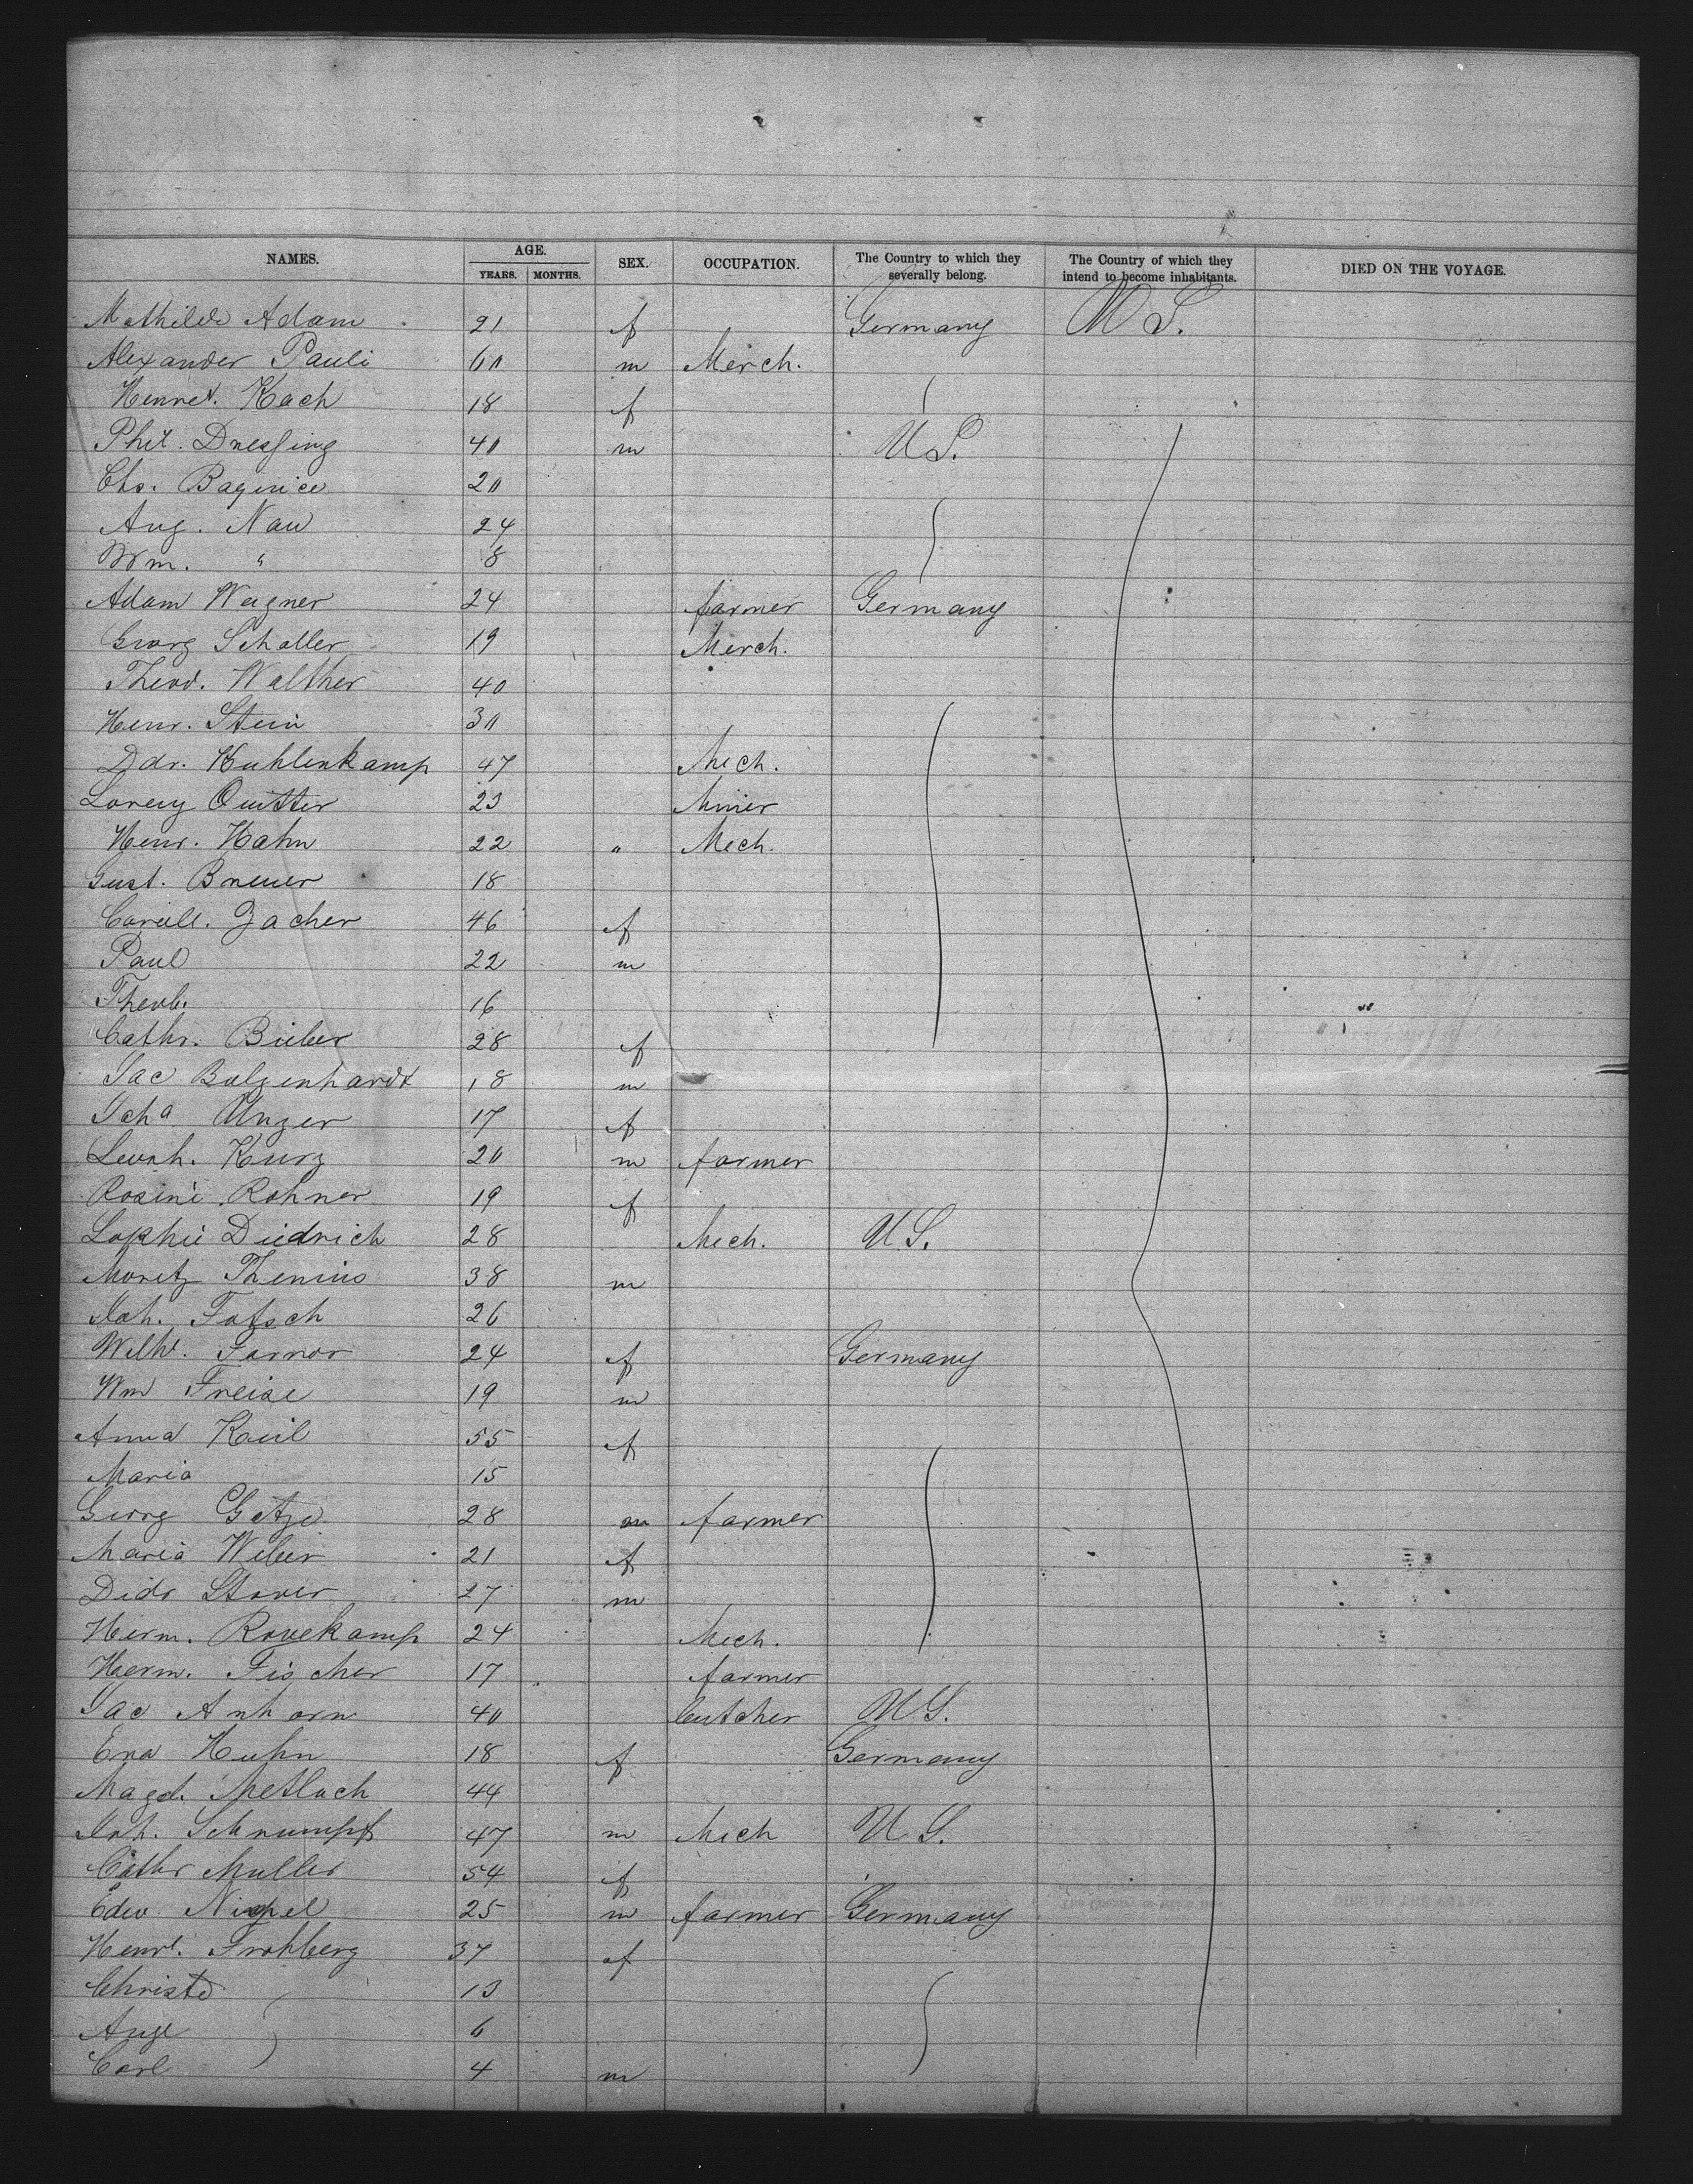 NAMES. AGE. YEARS. MONTHS. SEX. OCCUPATION. The Country to which they severally belong. The Country of which they intend to become inhabitants. DIED ON THE VOYAGE.
Mathilde Adam 21 f Germany U S.
Alexander Pauli 60 m Merch.
Henret. Koch 18 f
Phil. Dressing 40 m U S.
Chs. 20
Aug. Nau 24
Wm. " 8
Adam Wagner 24 farmer Germany
Georg Schaller 19 Merch.
Theod. Walther 40
Henr. Stein 30
Ddr. Kuhlenkamp 47 Mech.
Lorenz Quitter 23 Miner
Henr. Hahn 22 " Mech.
Gust. Breuer 18
Zacher 46 f
Paul 22 m
Theob. 16
Cathr. Bieber 28 f
Jac Bolzenhardt 18 m
Joha Unger 17 f
Leonh. Kurz 20 m farmer
Rosine Rohner 19 f
Sophie Diedrich 28 Mech. U.S.
Moritz Thenius 38 m
Joh. Fotsch 26
Wilh. 24 f Germany
Wm Freise 19 m
Anna Keil 55 f
Maria 15
Georg Getze 28 m farmer
Maria Weber 21 f
Didr Stover 27 m
Herm. Rovekamp 24 Mech.
Herm. Fischer 17 farmer
Jac Anhorn 40 butcher U.S.
Eva Huhn 18 f Germany
Magd. Metlach 44
Joh. Schrumpf 47 m Mech U.S.
Cathr Muller 54 f
Edw. 25 m farmer Germany
Henrt. Frohberg 37 f
Christe 13
Auge 6
Carl 4 m